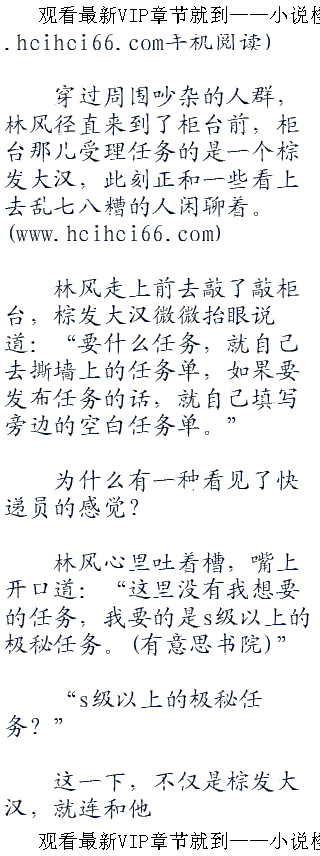 观看最新VIP章节就到——小说楼
.hcihci66.com手机阅读)
穿过周围吵杂的人群，
林风径直来到了柜台前，柜
台那儿受理任务的是一个棕
发大汉，此刻正和一些看上
去乱七八糟的人闲聊着。
(www.hcihci66.com)
林风走上前去敲了敲柜
台，棕发大汉微微抬眼说
道：“要什么任务，就自己
去撕墙上的任务单，如果要
发布任务的话，就自己填写
旁边的空白任务单。”
为什么有一种看见了快
递员的感觉？
林风心里吐着槽，嘴上
开口道：“这里没有我想要
的任务，我要的是s级以上的
极秘任务。(有意思书院)”
“s级以上的极秘任
务？”
这一下，不仅是棕发大
汉，就连和他
观看最新VIP章节就到——小说楼